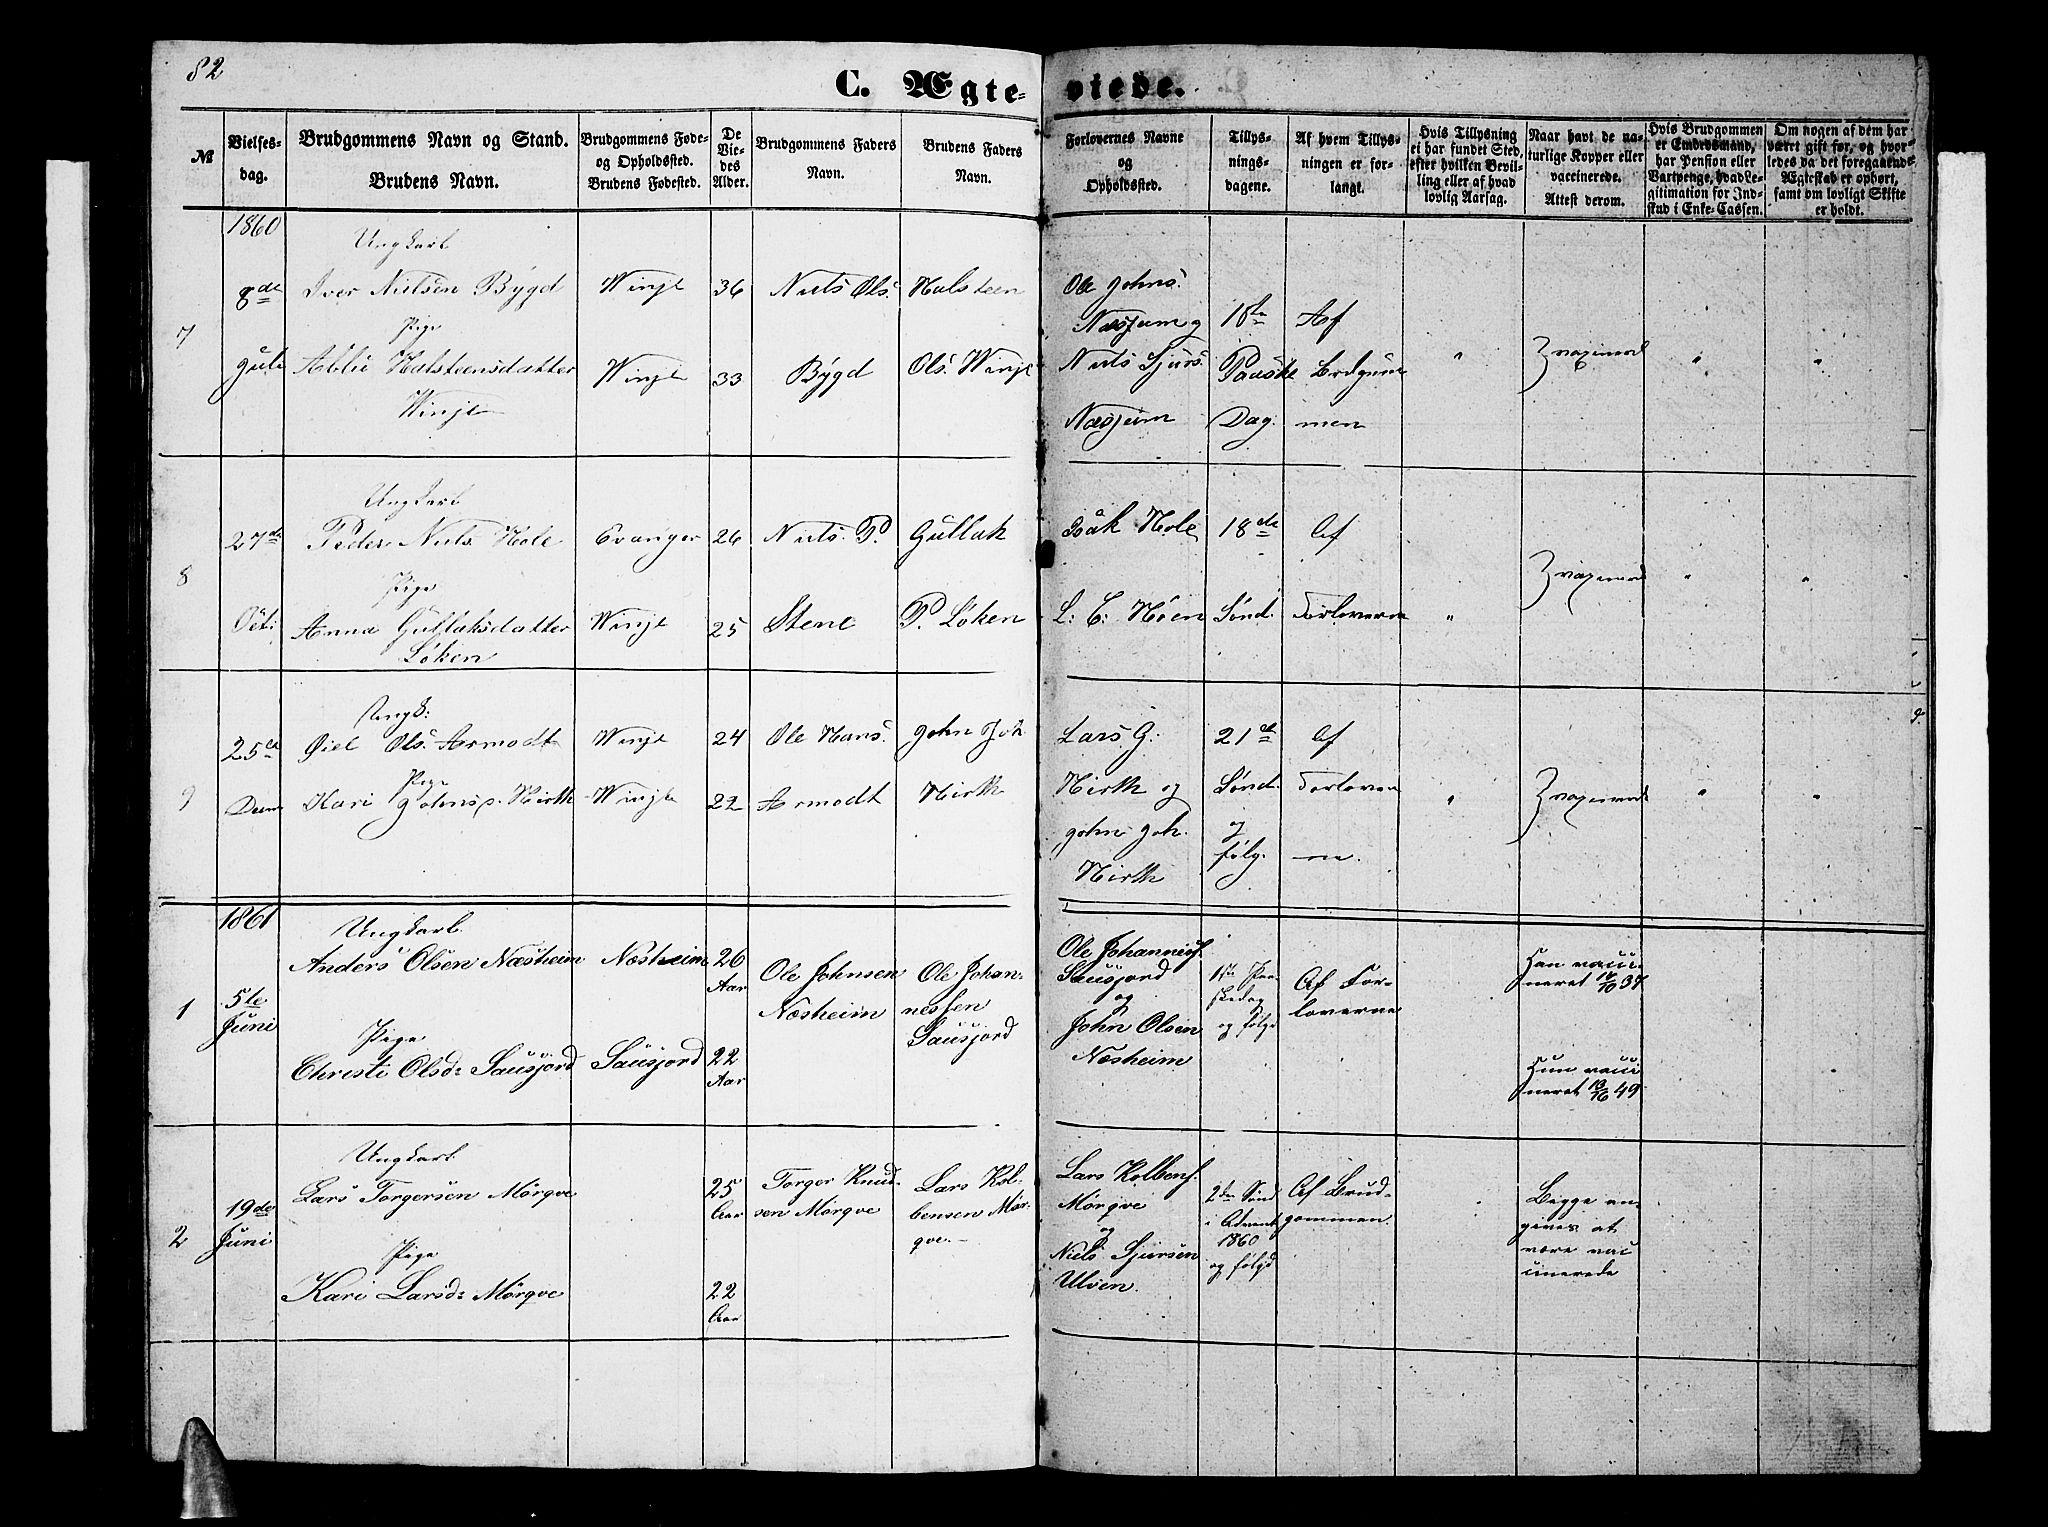 82
C. Ægte- viede.
№
Vielses-
dag.
Brudgommens Navn og Stand.
Brudens Navn.
Brudgommens Føde-
og Opholdssted.
Brudens Fødested.
De
Vie-
des
Alder.
Brudgommens Faders
Navn.
Brudens Faders
Navn.
Forlovernes Navne
og
Opholdssted.
Tillys-
nings-
dagene.
Af hvem Tillys-
ningen er for-
langt.
Hvis Tillysning
ei har fundet Sted,
efter hvilken Bevil-
ling eller af hvad
lovlig Aarsag.
Naar havt de na-
turlige Kopper eller
vaccinerede.
Attest derom.
Hvis Brudgommen
er Embedsmand,
har Pension eller
Vartpenge, hvad Le-
gitimation for Ind-
skud i Enke-Cassen.
Om nogen af dem har
været gift før, og hvor-
ledes da det foregaaende
Ægteskab er ophørt,
samt om lovligt Skifte
er holdt.
1860
7
8de
Juli
Ungkarl
Iver Nilsen Bÿgd
Pige
Halsteensdatter
Winje
Winje
Winje
36
33
Nils Ols.
Bÿgd
Halsteen
Ols. Winje
Ole Johns.
Næsjeim og
Nils Sjurs.
Næsjeim
1ste
Paaske
Dag.
Af
Brdgom
men
"
vaxinered
"
"
8
27de
Oct:
Ungkarl
Peder Nils. Hole
Pige
Anna Gullaksdatter
Løken
Evanger
Winje
26
25
Nils. P.
Stene
Gullak
P. Løken
Hole
L: C: Höen
18de
Sønd.
Af
Forloverne
"
vaxinered
"
"
9
25de
Decm
Ungk:
Ols. Armodt
Pige
Kari Johnsd. Hirth
Winje
Winje
24
22
Ole Hans.
Armodt
John Joh.
Hirth
Lars G.
Hirth og
John Joh.
Hirth
21de
Sønd.
og
følg.
Af
Forlover
ne.
"
vaxinered
"
"
1861
1
5te
Juni
Ungkarl
Anders Olsen Næsheim
Pige
Christi Olsd: Sausjord
Næsheim
Sausjord
26
Aar
22
Aar
Ole Johnsen
Næsheim
Ole Johan-
nessen
Sausjord
Ole Johannesf.
Sausjord
og
John Olsen
Næsheim
1ste Paa-
skedag
og følgd
Af For-
loverne
Han vacci-
neret 37
Hun vacci
neret 49
2
19de
Juni
Ungkarl
Lars Torgersen Mørqve
Pige
Kari Larsd: Mørqve
25
Aar
22
Aar
Torger Knud-
sen Mørqve
Lars Kol-
bensen Mør-
qve.
Lars Kolbensf.
Mørqve
og
Niels Sjursen
Ulven.
2den Sönd
i Advent
1860
og følgd
Af Brud-
gommen.
Begge an-
gives at
være vac
cinerede